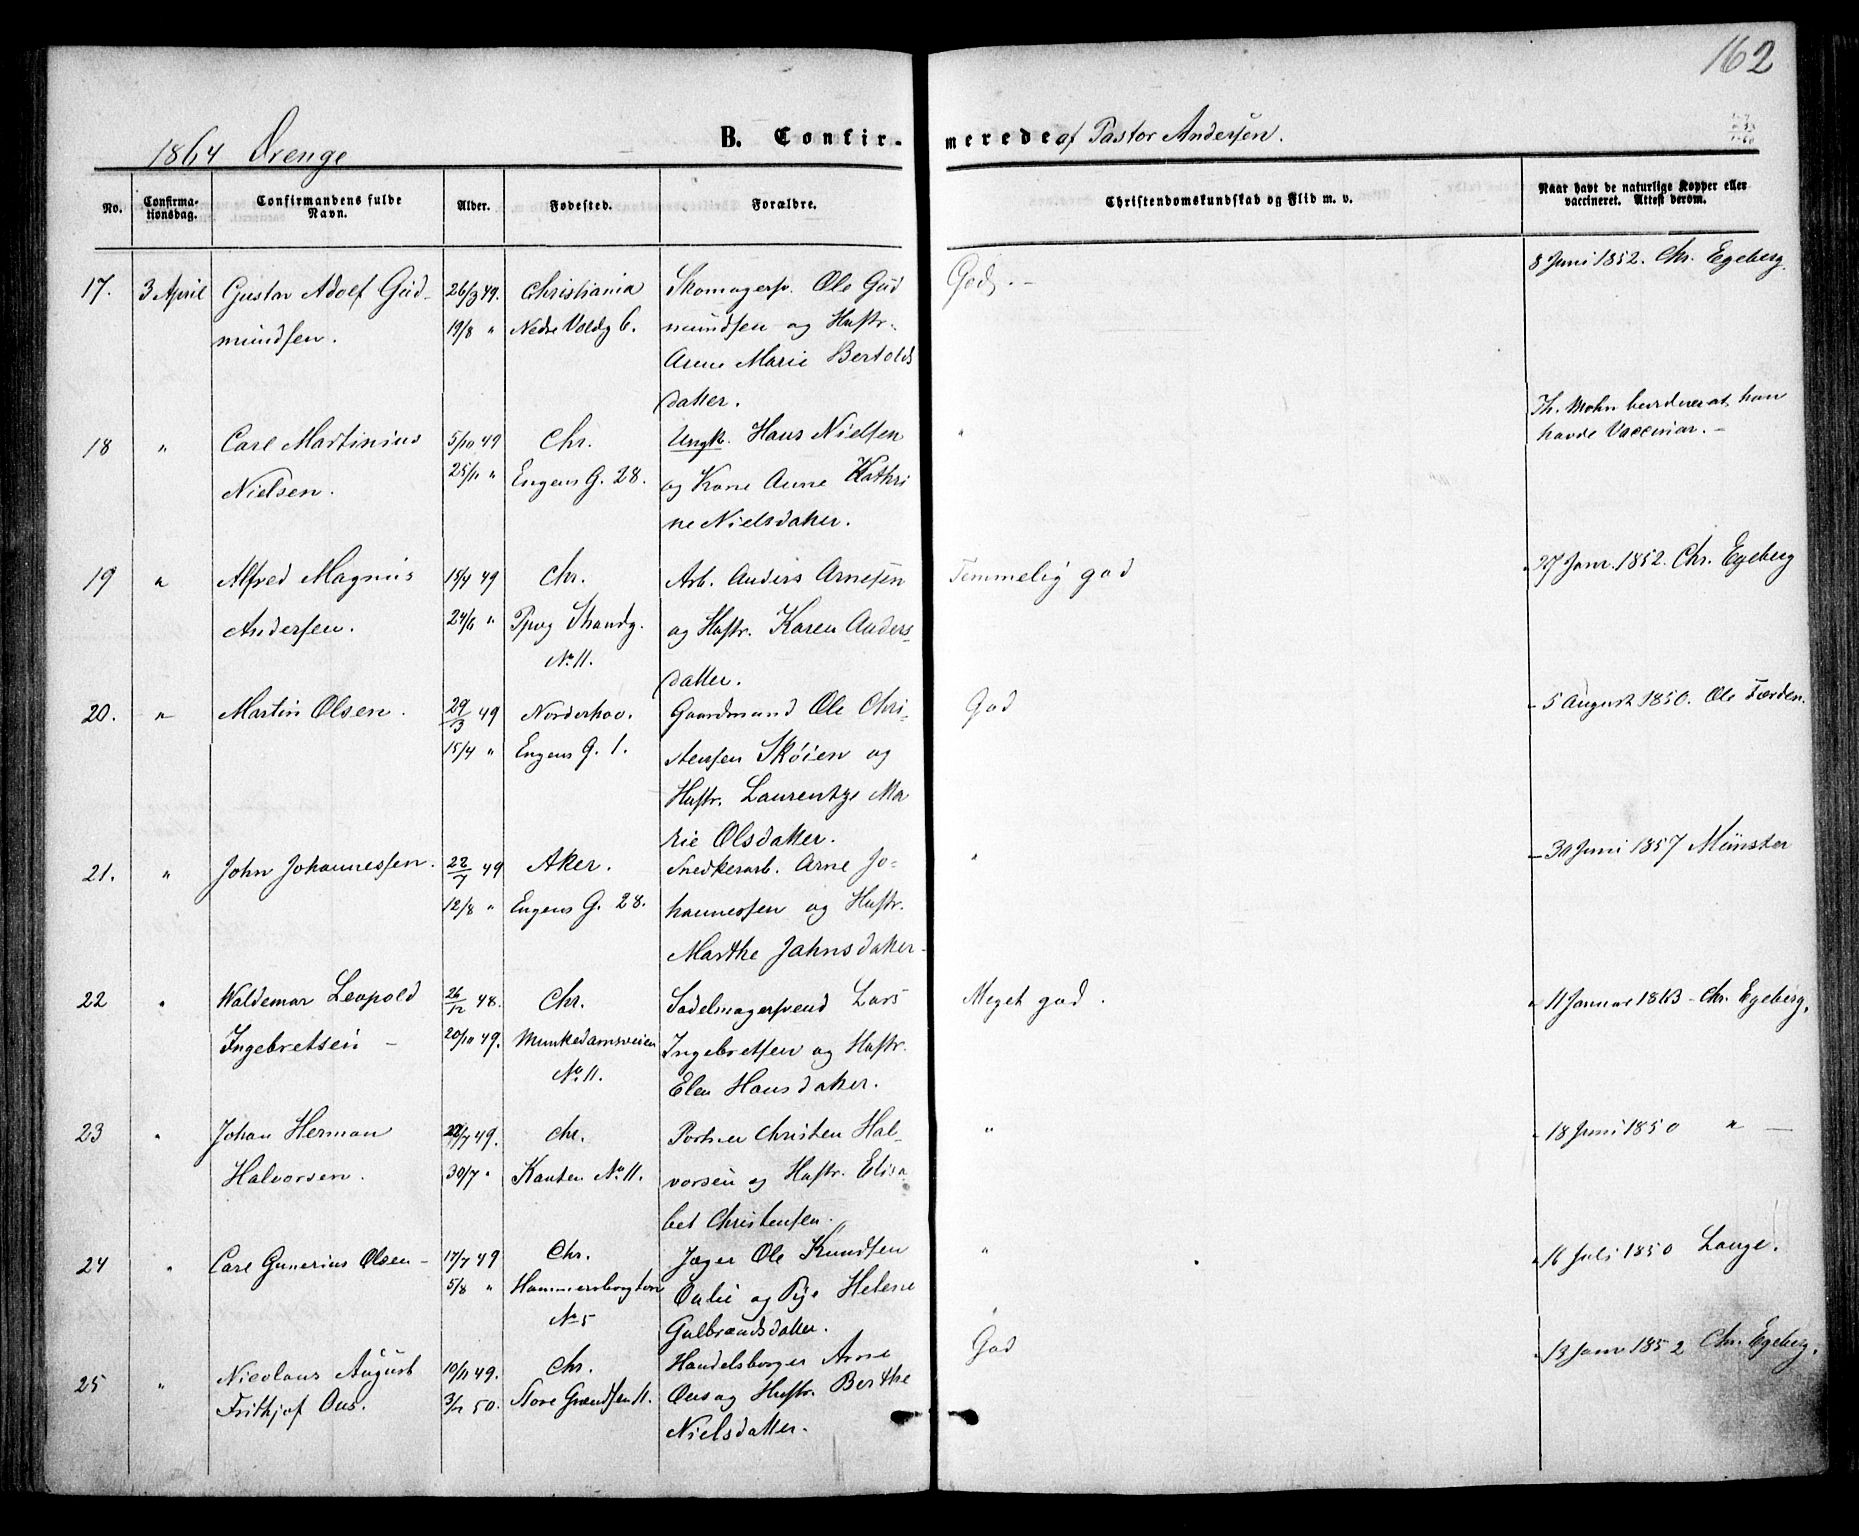 162
1864 Drenge
B. Confir-
merede af Pastor Andersen.
No.
Confirma-
tionsdag.
Confirmandens fulde
Navn.
Alder.
Fødested.
Forældre.
Christendomskundskab og Flid m. v.
Naar havt de naturlige Kopper eller
vaccineret. Attest derom.
17. 3 April Gustav Adolf Gud- 26/3 49. Christiania Skomagersv. Ole Gud God. - 8 Juni 1852. Chr. Egeberg.
mundsen. 19/8 " Nedre Voldg 6. mundsen og Hustr.
Anne Marie Bertolds
datter.
18 " Carl Martinius 5/10 49 Chr. Ungk. Hans Nielsen " Th. Mohn bevidner at han
havde Vacciniar. -
Nielsen. 25/11 " Engens G. 28. og Kone Anne Kathri
ne Nielsdatter.
19 " Alfred Magnus 15/4 49 Chr. Arb. Anders Arnesen Temmelig god 27 Janr. 1852. Chr. Egeberg
Andersen. 24/6 " Pipvg Strandg. og Hustr. Karen Anders-
No 11. datter.
20. " Martin Olsen. 29/3 49 Norderhov. Gaardmand Ole Chri- God 5 August 1850. Ole Færden.
15/4 " Engens G. 1. stensen Skøien og
Hustr. Laurentze Ma
rie Olsdatter.
21. " John Johannessen. 22/7 49 Aker. Snedkerarb. Arne Jo- " Juni 1857 Münster
12/8 " Engens G. 28. hannessen og Hustr.
Marthe Jahnsdatter-
22 " Waldemar Leopold 26/12 48. Chr. Sadelmagersvend Lars Meget god. 11 Januar 1863 - Chr. Egeberg.
Ingebretsen - 20/10 49. Munkedamsveien Ingebretsen og Hustr.
No. 11. Elen Hansdatter.
23 " Johan Herman /7 49. Chr. Portner Christen Hal- " 18 Juni 1850 " -
Halvorsen. 30/7 " Kanten No. 11. vorsen og Hustr. Elisa
bet Christensen.
24 " Carl Gunerius Olsen - 17/7 49 Chr. Jæger Ole Knudsen " 16 Juli 1850 Lange.
5/8 " Hammersborgtorv og Pige Helene
No 5 Gulbrandsdatter.
25 " Nicolaus August 10/11 49. Chr. Handelsborger Arne God 13 Janr 1852 Chr. Egeberg.
Frithjof Ous. 3/2 50. Store Grændsen 11. Ous og Hustr. Berthe
Nielsdatter.